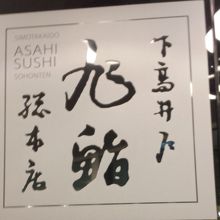 SIMOTAKAIDO
ASAHI
SUSHI
SOHONTEN
下高井戸
旭鮨
総本店